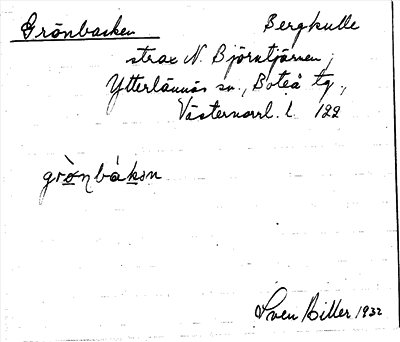 Grönbacken Bergkulle
strax N. Björntjärnen,
Ytterlännäs sn., Boteå tg.,
Västernorrl. l. 122
grò̱nbáḵən
Sven Biller 1932